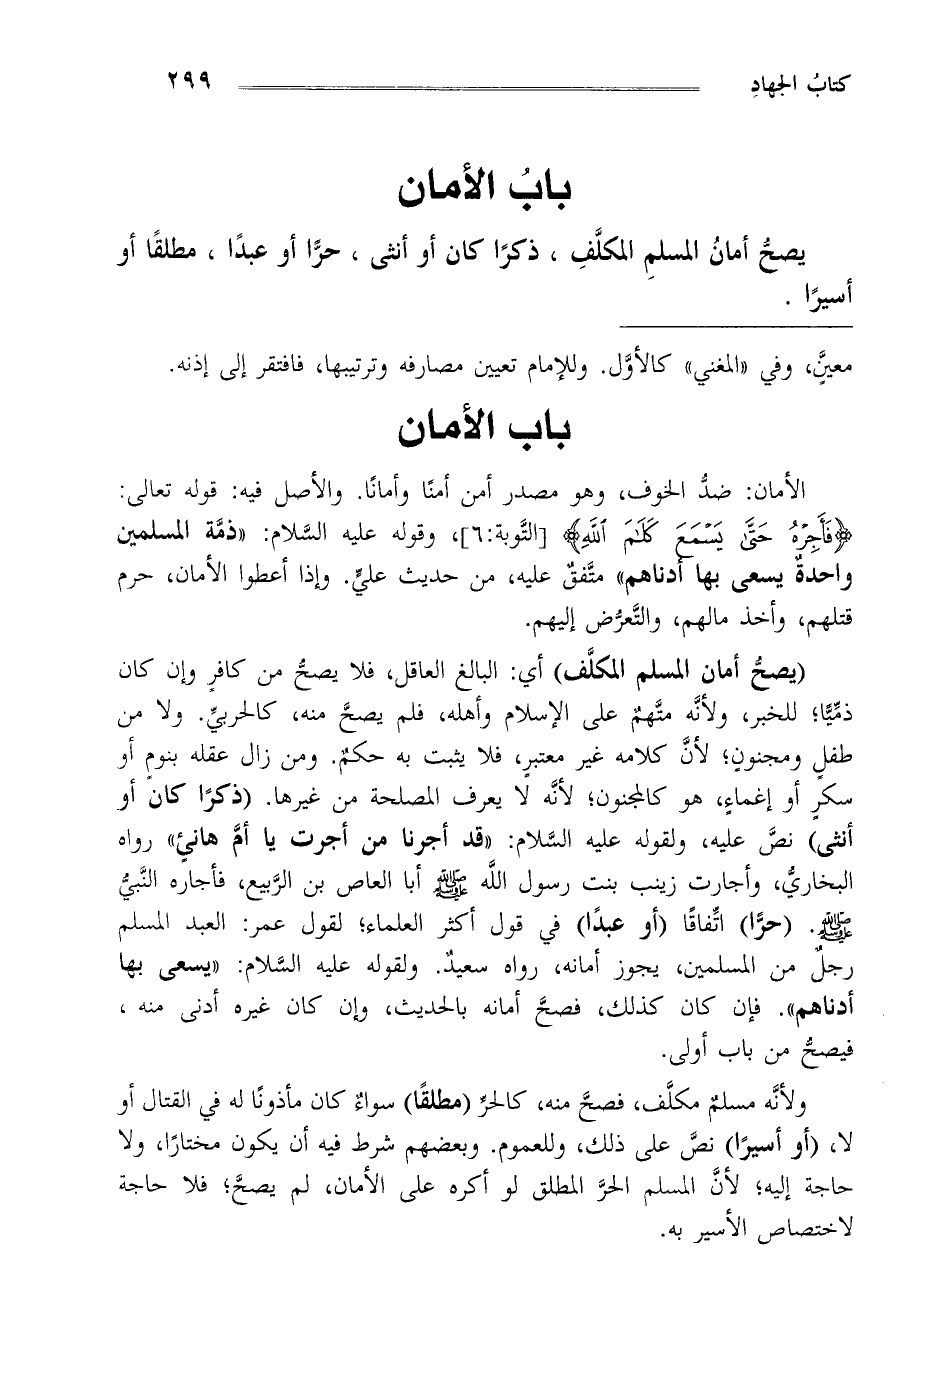 كتابُ الجهادِ ٢٩٩
بابُ الأمان
يصحُّ أمانُ المسلمِ المكلَّفِ ، ذكرًا كان أو أنثى ، حرًّا أو عبدًا ، مطلقًا أو
أسيرًا .
معينٍَّ، وفي «المغني» كالأوَّل. وللإمام تعيين مصارفه وترتيبها، فافتقر إلى إذنه.
باب الأمان
الأمان: ضدُّ الخوف، وهو مصدر أمن أمنًا وأمانًا. والأصل فيه: قوله تعالى:
﴿فَأَجِرْهُ حَتَّىٰ يَسْمَعَ كَلَٰمَ ٱللَّهِ﴾ [التَّوبة:٦]، وقوله عليه السَّلام: «ذمَّة المسلمين
واحدةٌ يسعى بها أدناهم» متَّفقٌ عليه، من حديث عليٍّ. وإذا أعطوا الأمان، حرم
قتلهم، وأخذ مالهم، والتَّعرُّض إليهم.
(يصحُّ أمان المسلم المكلَّف) أي: البالغ العاقل، فلا يصحُّ من كافرٍ وإن كان
ذمِّيًّا؛ للخبر، ولأنَّه متَّهمٌ على الإسلام وأهله، فلم يصحَّ منه، كالحربيِّ. ولا من
طفلٍ ومجنونٍ؛ لأنَّ كلامه غير معتبرٍ، فلا يثبت به حكمٌ. ومن زال عقله بنومٍ أو
سكرٍ أو إغماءٍ، هو كالمجنون؛ لأنَّه لا يعرف المصلحة من غيرها. (ذكرًا كان أو
أنثى) نصَّ عليه، ولقوله عليه السَّلام: «قد أجرنا من أجرت يا أمَّ هانئٍ» رواه
البخاريُّ، وأجارت زينب بنت رسول اللَّه ﷺ أبا العاص بن الرَّبيع، فأجاره النَّبيُّ
ﷺ. (حرًّا) اتِّفاقًا (أو عبدًا) في قول أكثر العلماء؛ لقول عمر: العبد المسلم
رجلٌ من المسلمين، يجوز أمانه، رواه سعيدٌ. ولقوله عليه السَّلام: «يسعى بها
أدناهم». فإن كان كذلك، فصحَّ أمانه بالحديث، وإن كان غيره أدنى منه ،
فيصحُّ من باب أولى.
ولأنَّه مسلمٌ مكلَّف، فصحَّ منه، كالحرِّ (مطلقًا) سواءٌ كان مأذونًا له في القتال أو
لا، (أو أسيرًا) نصَّ على ذلك، وللعموم. وبعضهم شرط فيه أن يكون مختارًا، ولا
حاجة إليه؛ لأنَّ المسلم الحرَّ المطلق لو أكره على الأمان، لم يصحَّ؛ فلا حاجة
لاختصاص الأسير به.